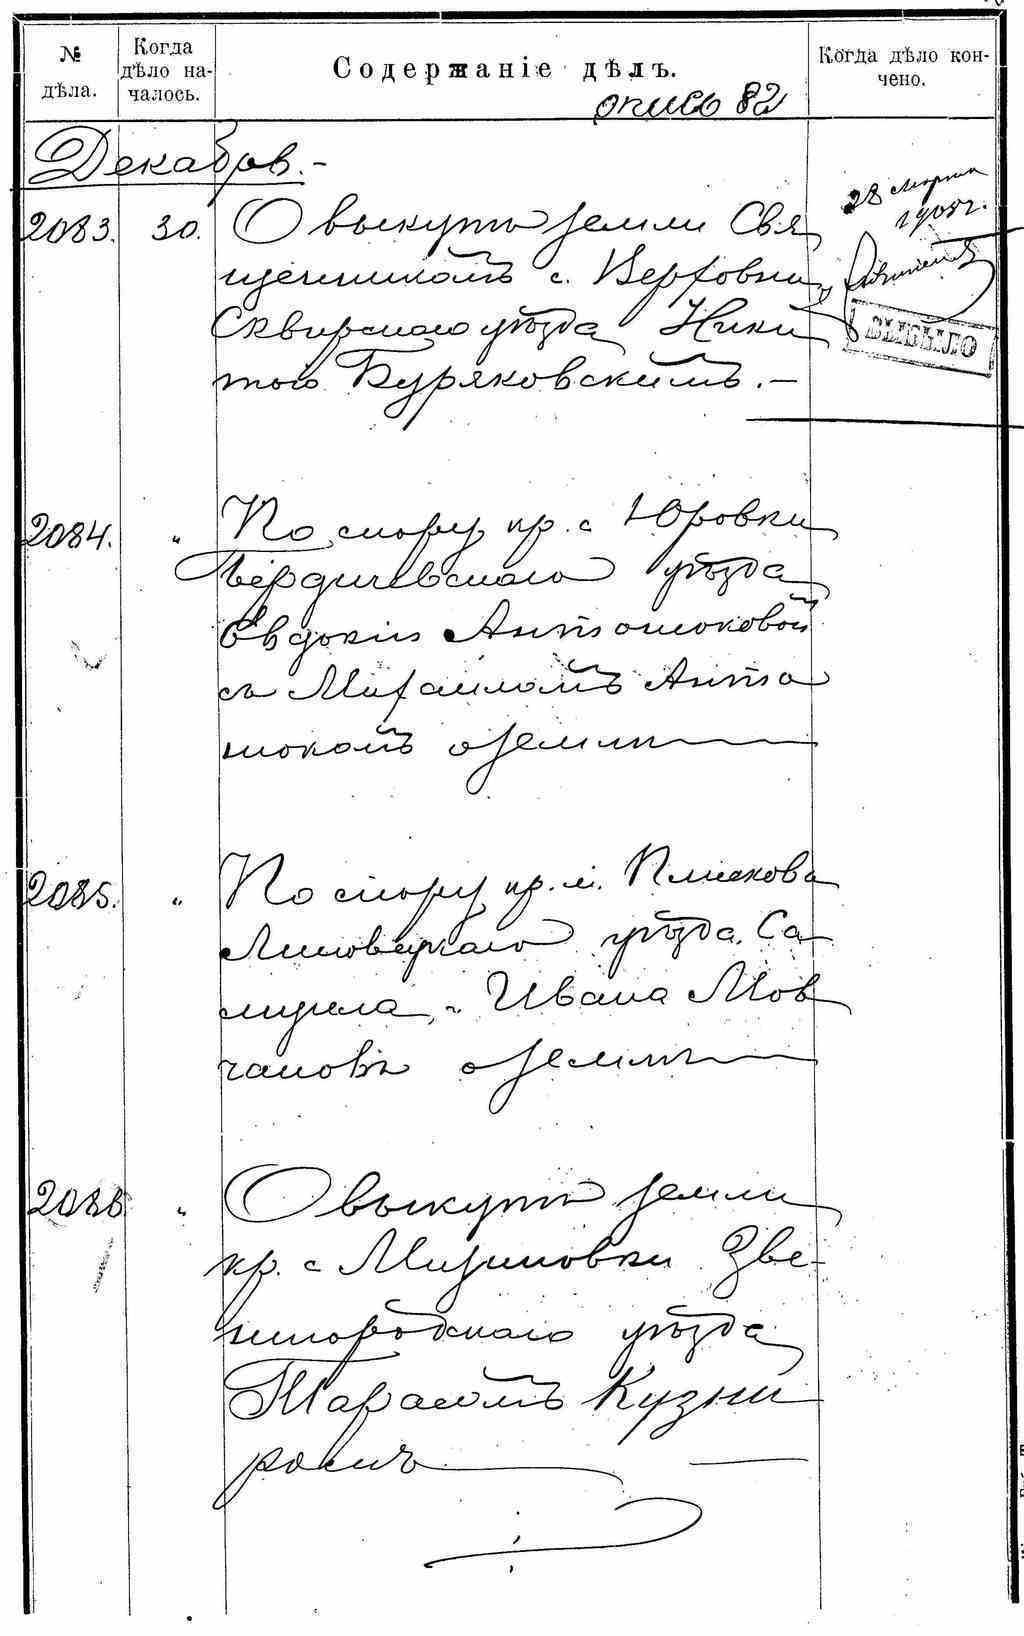 № дѣла.
Когда дѣло началось.
Содержаніе дѣлъ.
Когда дѣло кончено.
опись 82
Декабрь.-
2083. 30. О выкупѣ земли Свя
щенникомъ с. Верховни
Сквирскаго уѣзда Ники
тою Буряковскимъ.-
28 марта
1905 г.
ВЫБЫЛО
2084. " По спору кр. с Юровки
Бердичевскаго уѣзда
Евдокіи Антонюковой
съ Михаиломъ Анто
нюкомъ о землѣ
2085. " По спору кр. м. Плискова
Липовецкаго уѣзда. Са
муила, и Ивана Мов
чановъ о землѣ
2086 " О выкупѣ земли
кр. с Мизиновки Зве-
нигородскаго уѣзда
Тарасомъ Кузни